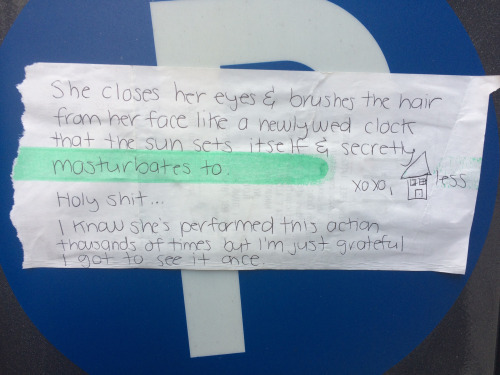 She closes her eyes & brushes the hair
from her face like a newlywed clock
that the sun sets itself & secretly
masturbates to.
xoxo, less
Holy shit...
I know she's performed this action
thousands of times but I'm just grateful
I got to see it once.